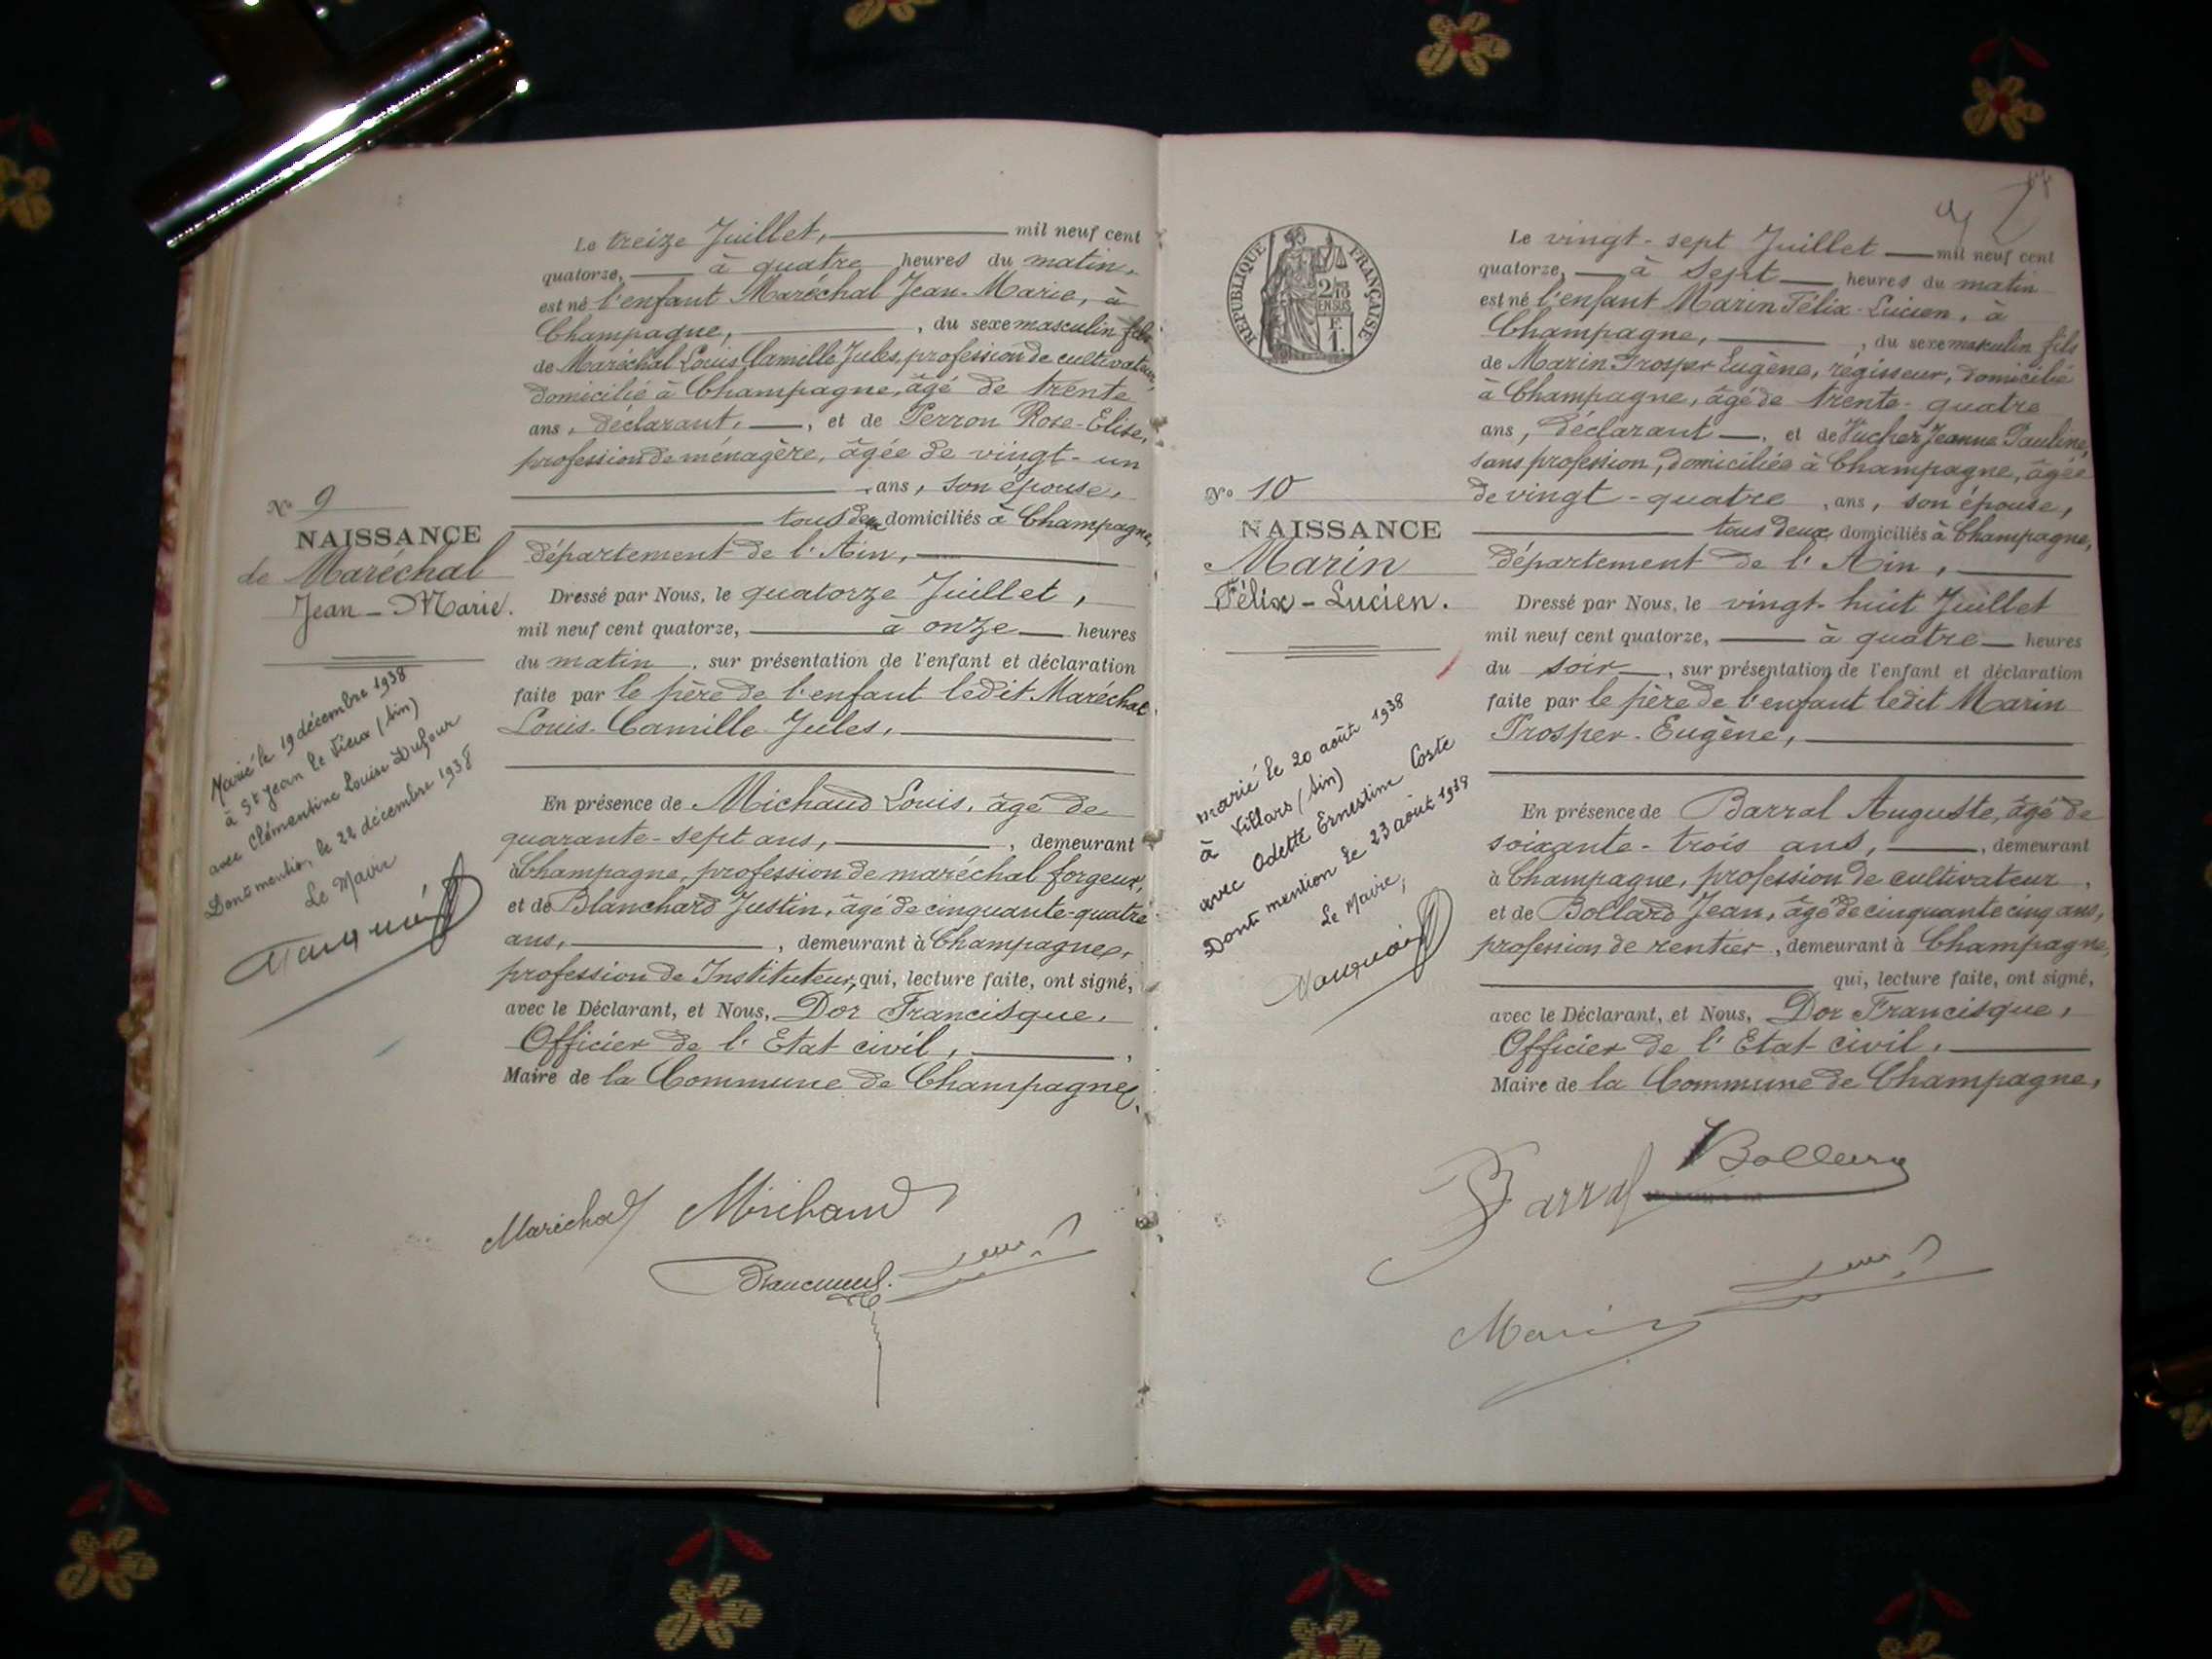 Le treize Juillet, mil neuf cent
quatorze, à quatre heures du matin,
est né l'enfant Maréchal Jean-Marie, à
Champagne, , du sexe masculin fils
de Maréchal Louis Camille Jules, profession de cultivateur,
domicilié à Champagne, âgé de trente
ans, déclarant, , et de Perron Rose-Elise,
profession de ménagère, âgée de vingt-un
ans, son épouse,
tous deux domiciliés à Champagne,
département de l'Ain,
Dressé par Nous, le quatorze Juillet,
mil neuf cent quatorze, à onze heures
du matin, sur présentation de l'enfant et déclaration
faite par le père de l'enfant ledit Maréchal
Louis-Camille-Jules,
En présence de Michaud Louis, âgé de
quarante-sept ans, , demeurant
à Champagne, profession de maréchal forgeur,
et de Blanchard Justin, âgé de cinquante-quatre
ans, , demeurant à Champagne,
profession de Instituteur, qui, lecture faite, ont signé,
avec le Déclarant, et Nous, Dor Francisque,
Officier de l'Etat-civil, ,
Maire de la Commune de Champagne,
Maréchal Michaud
No 9
NAISSANCE
de Maréchal
Jean-Marie.
Marié le 19 décembre 1938
à St Jean le Vieux (Ain)
avec Clémentine Louise Dufour
Dont mention, le 22 décembre 1938
Le Maire
REPUBLIQUE FRANÇAISE
2/10
EN SUS
F.
1.
No 10
NAISSANCE
Marin
Félix-Lucien.
marié le 20 août 1938
à Villars (Ain)
avec Odette Ernestine Coste
Dont mention le 23 août 1938
Le Maire,
Le vingt-sept Juillet mil neuf cent
quatorze, à Sept heures du matin
est né l'enfant Marin Félix-Lucien, à
Champagne, , du sexe masculin fils
de Marin Prosper Eugène, régisseur, domicilié
à Champagne, âgé de trente-quatre
ans, déclarant , et de Jeanne Pauline,
sans profession, domiciliée à Champagne, âgée
de vingt-quatre , ans, son épouse,
tous deux domiciliés à Champagne,
département de l'Ain,
Dressé par Nous, le vingt-huit Juillet
mil neuf cent quatorze, à quatre heures
du soir , sur présentation de l'enfant et déclaration
faite par le père de l'enfant ledit Marin
Prosper-Eugène,
En présence de Barral Auguste, âgé de
soixante-trois ans, , demeurant
à Champagne, profession de cultivateur,
et de Bollard Jean, âgé de cinquante cinq ans,
profession de rentier, demeurant à Champagne,
qui, lecture faite, ont signé,
avec le Déclarant, et Nous, Dor Francisque,
Officier de l'Etat-civil,
Maire de la Commune de Champagne,
Barral
Marin